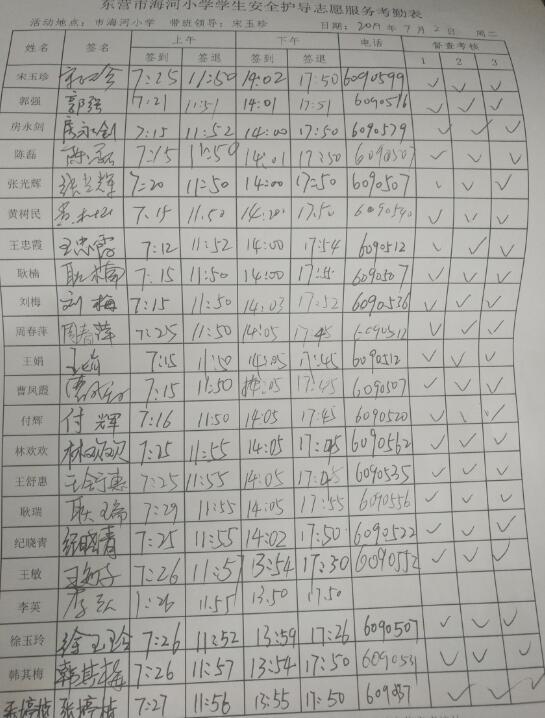 东营市海河小学学生安全护导志愿服务考勤表
活动地点：市海河小学 带班领导：宋玉珍 日期：2019年7月2日 周二
姓名 签名 上午 下午 电话 督查考核
签到 签退 签到 签退 1 2 3
宋玉珍 7:25 11:50 14:02 17:50 6090599 ✓ ✓ ✓
郭强 郭强 7:21 11:51 14:01 17:51 6090516 ✓ ✓ ✓
房永剑 房永剑 7:15 11:52 14:00 17:50 6090579 ✓ ✓ ✓
陈磊 陈磊 7:15 11:50 14:01 17:50 6090507 ✓ ✓ ✓
张光辉 张光辉 7:20 11:50 14:00 17:50 6090507 ✓ ✓ ✓
黄树民 7:15 11:50 14:00 17:50 6090540 ✓ ✓ ✓
王忠霞 王忠霞 7:12 11:52 14:00 17:54 6090512 ✓ ✓ ✓
耿楠 耿楠 7:15 11:50 14:00 17:55 6090507 ✓ ✓ ✓
刘梅 刘梅 7:15 11:50 14:03 17:52 6090536 ✓ ✓ ✓
周春萍 周春萍 7:25 11:50 14:05 17:45 6090512 ✓ ✓ ✓
王娟 王娟 7:15 11:50 14:05 17:45 6090512 ✓ ✓ ✓
曹凤霞 7:15 11:50 14:05 17:45 6090507 ✓ ✓ ✓
付辉 付辉 7:16 11:50 14:05 17:45 6090520 ✓ ✓ ✓
林欢欢 林欢欢 7:25 11:55 14:05 17:45 6090562 ✓ ✓ ✓
王舒惠 王舒惠 7:25 11:55 14:05 17:45 6090535 ✓ ✓ ✓
耿瑞 耿瑞 7:29 11:55 14:05 17:55 6090556 ✓ ✓ ✓
纪晓青 纪晓青 7:25 11:55 14:02 17:50 6090522 ✓ ✓ ✓
王敏 7:26 11:57 13:54 17:30 6090552 ✓ ✓ ✓
李英 李英 7:26 11:55 13:50 17:50
徐玉玲 徐玉玲 7:26 11:52 13:59 17:26 6090507 ✓ ✓ ✓
韩其梅 韩其梅 7:26 11:57 13:54 17:50 609053 ✓ ✓ ✓
张婷婷 7:27 11:56 13:55 17:50 ✓ ✓ ✓